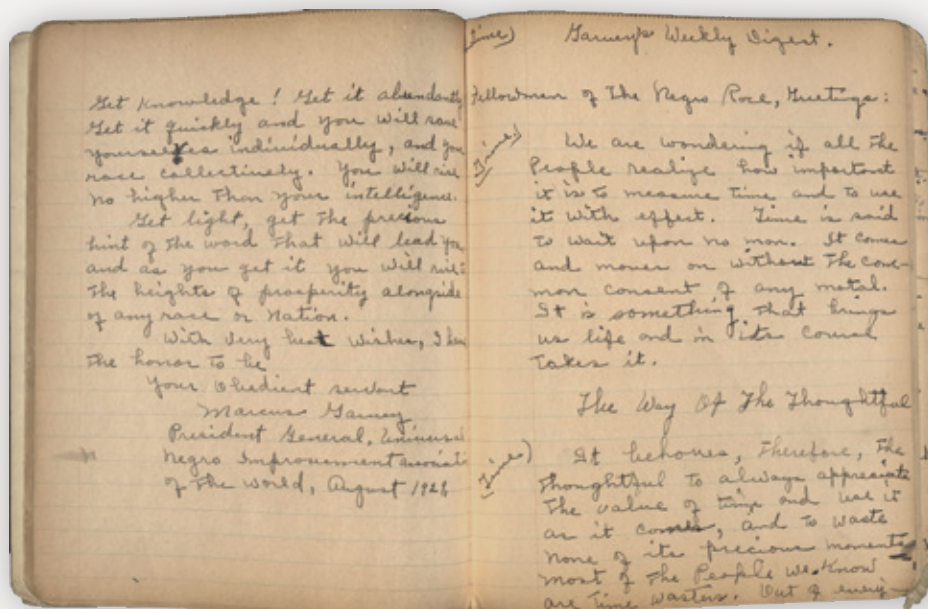 Get knowledge! Get it abundantly
Get it quickly and you will save
yourselves individually, and your
race collectively. You will rise
no higher than your intelligence.
Get light, get the precious
hint of the word that will lead you
and as you get it you will rise
the heights of prosperity alongside
of any race or nation.
With very best wishes, I have
the honor to be
Your obedient servant
Marcus Garvey
President General, Universal
Negro Improvement Associati
of the world, August
(Time)
Garvey's Weekly Digest.
Fellowmen of The Negro Race, Greetings:
(Time)
We are wondering if all the
People realize how important
it is to measure time and to use
it with effect. Time is said
to wait upon no man. It comes
and moves on without the com-
mon consent of any metal.
It is something that brings
us life and in its course
takes it.
The Way Of The Thoughtful
(Time)
It behooves, therefore, the
thoughtful to always appreciate
the value of time and use it
as it comes, and to waste
none of its precious moments
most of the People we know
are time wasters. Out of every-